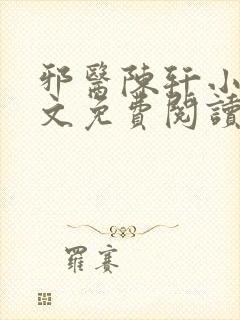 邪醫陳軒小
文免費閱讀
羅賽